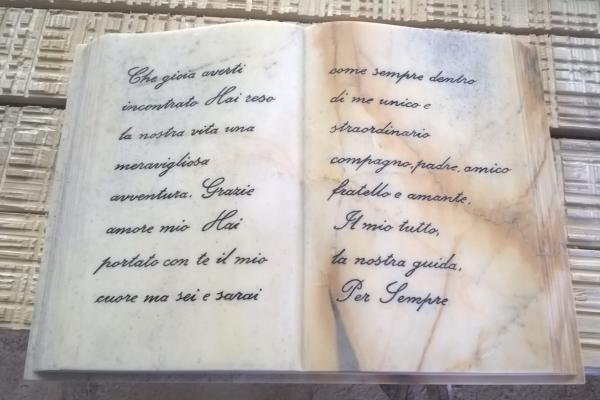 Che gioia averti
incontrato Hai reso
la nostra vita una
meravigliosa
avventura. Grazie
amore mio Hai
portato con te il mio
cuore ma sei e sarai
come sempre dentro
di me unico e
straordinario
compagno, padre, amico
fratello e amante.
Il mio tutto,
la nostra guida,
Per Sempre